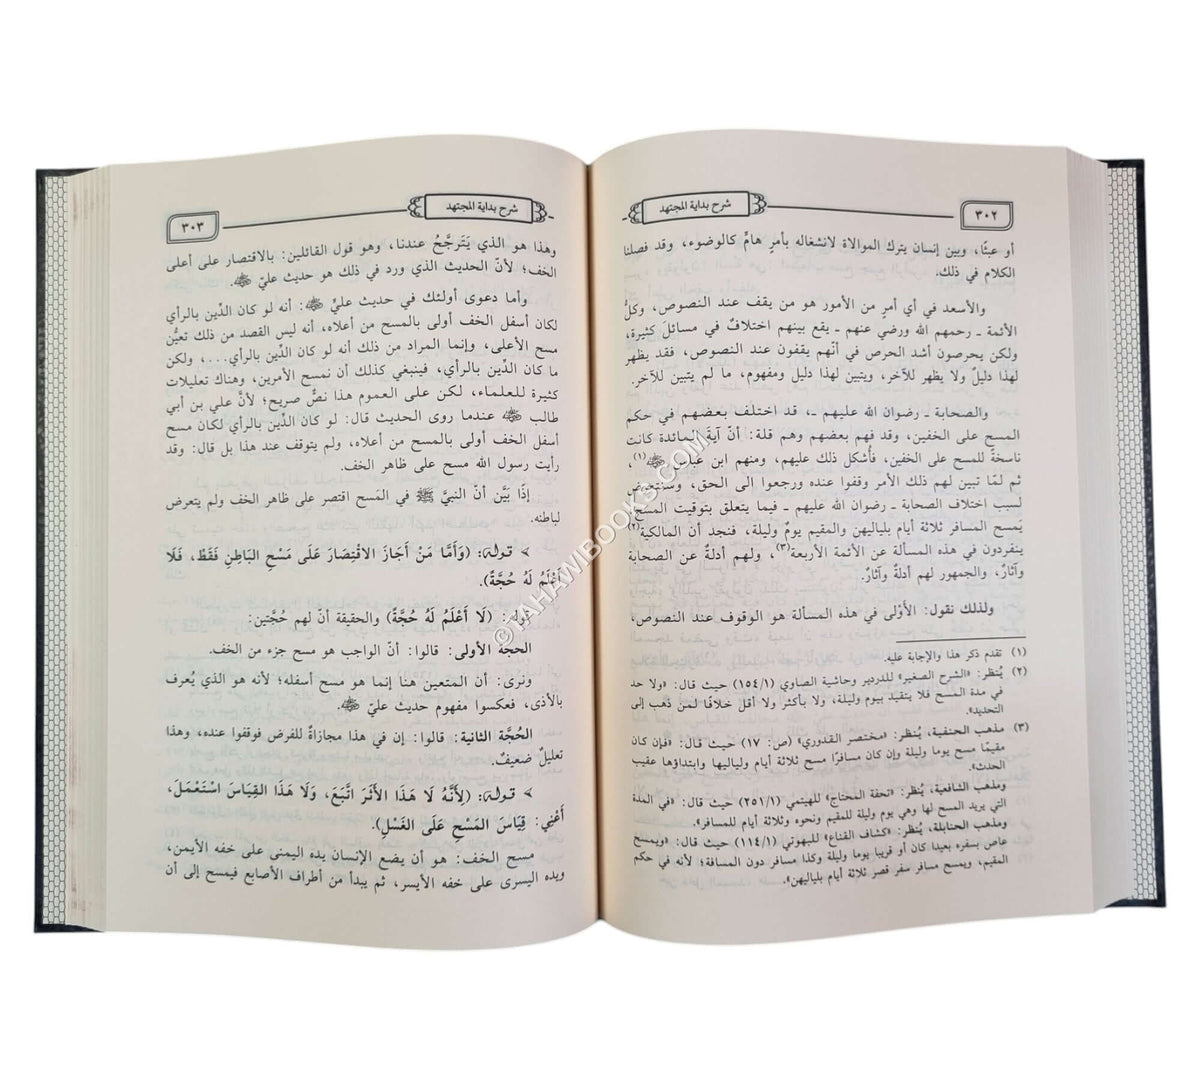 ٣٠٢
شرح بداية المجتهد
أو عبثًا، وبين إنسان يترك الموالاة لانشغاله بأمرٍ هامٍّ كالوضوء، وقد فصلنا
الكلام في ذلك.
والأسعد في أي أمرٍ من الأمور هو من يقف عند النصوص، وكلُّ
الأئمة ـ رحمهم الله ورضي عنهم ـ يقع بينهم اختلافٌ في مسائلَ كثيرة،
ولكن يحرصون أشد الحرص في أنّهم يقفون عند النصوص، فقد يظهر
لهذا دليلٌ ولا يظهر للآخر، ويتبين لهذا دليل ومفهوم، ما لم يتبين للآخر.
والصحابة ـ رضوان الله عليهم ـ، قد اختلف بعضهم في حكم
المسح على الخفين، وقد فهم بعضهم وهم قلة: أنّ آيةَ المائدة كانت
ناسخةً للمسح على الخفين، فأُشكل ذلك عليهم، ومنهم ابن عباس ﷺ(١)،
ثم لمّا تبين لهم ذلك الأمر وقفوا عنده ورجعوا الى الحق، وسنتعرض
لسبب اختلاف الصحابة ـ رضوان الله عليهم ـ فيما يتعلق بتوقيت المسح
يَمسح المسافر ثلاثة أيام بلياليهن والمقيم يومٌ وليلة، فنجد أن المالكية(٢)
ينفردون في هذه المسألة عن الأئمة الأربعة(٣)، ولهم أدلةٌ عن الصحابة
وآثارٌ، والجمهور لهم أدلةٌ وآثارٌ.
ولذلك نقول: الأَوْلى في هذه المسألة هو الوقوف عند النصوص،
(١) تقدم ذكر هذا والإجابة عليه.
(٢) يُنظر: «الشرح الصغير» للدردير وحاشية الصاوي (١٥٤/١) حيث قال: «ولا حد
في مدة المسح فلا يتقيد بيوم وليلة، ولا بأكثر ولا أقل خلافًا لمن ذهب إلى
التحديد».
(٣) مذهب الحنفية، يُنظر: «مختصر القدوري» (ص: ١٧) حيث قال: «فإن كان
مقيمًا مسح يوما وليلة وإن كان مسافرًا مسح ثلاثة أيام ولياليها وابتداؤها عقيب
الحدث».
ومذهب الشافعية، يُنظر: «تحفة المحتاج» للهيتمي (٢٥١/١) حيث قال: «في المدة
التي يريد المسح لها وهي يوم وليلة للمقيم ونحوه وثلاثة أيام للمسافر».
ومذهب الحنابلة، يُنظر: «كشاف القناع» للبهوتي (١١٤/١) حيث قال: «ويمسح
عاص بسفره بعيدا كان أو قريبا يوما وليلة وكذا مسافر دون المسافة؛ لأنه في حكم
المقيم، ويمسح مسافر سفر قصر ثلاثة أيام بلياليهن».
شرح بداية المجتهد
٣٠٣
وهذا هو الذي يَتَرجَّحُ عندنا، وهو قول القائلين: بالاقتصار على أعلى
الخف؛ لأنّ الحديث الذي ورد في ذلك هو حديث عليّ ﷺ.
وأما دعوى أولئك في حديث عليٍّ ﷺ: أنه لو كان الدِّين بالرأي
لكان أسفل الخف أولى بالمسح من أعلاه، أنه ليس القصد من ذلك تعيُّن
مسح الأعلى، وإنما المراد من ذلك أنه لو كان الدِّين بالرأي...، ولكن
ما كان الدِّين بالرأي، فينبغي كذلك أن نمسح الأمرين، وهناك تعليلات
كثيرة للعلماء، لكن على العموم هذا نصٌّ صريح؛ لأنَّ علي بن أبي
طالب ﷺ عندما روى الحديث قال: لو كان الدِّين بالرأي لكان مسح
أسفل الخف أولى بالمسح من أعلاه، ولم يتوقف عند هذا بل قال: وقد
رأيت رسول الله مسح على ظاهر الخف.
إذًا بَيَّن أنّ النبيَّ ﷺ في المسح اقتصر على ظاهر الخف ولم يتعرض
لباطنه.
> قوله: (وَأَمَّا مَنْ أَجَازَ الاقْتِصَارَ عَلَى مَسْحِ البَاطِنِ فَقَطْ، فَلَا
أَعْلَمُ لَهُ حُجَّةً).
قوله: (لَا أَعْلَمُ لَهُ حُجَّةً) والحقيقة أنّ لهم حُجَّتين:
الحجة الأولى: قالوا: أنّ الواجب هو مسح جزء من الخف.
ونرى: أن المتعين هنا إنما هو مسح أسفله؛ لأنه هو الذي يُعرف
بالأذى، فعكسوا مفهوم حديث عليّ ﷺ.
الحُجَّة الثانية: قالوا: إن في هذا مجازاةٌ للفرض فوقفوا عنده، وهذا
تعليلٌ ضعيفٌ.
> قوله: (لِأَنَّهُ لَا هَذَا الأَثَرَ اتَّبَعَ، وَلَا هَذَا القِيَاسَ اسْتَعْمَلَ،
أَعْنِي: قِيَاسَ المَسْحِ عَلَى الغَسْلِ).
مسح الخف: هو أن يضع الإنسان يده اليمنى على خفه الأيمن،
ويده اليسرى على خفه الأيسر، ثم يبدأ من أطراف الأصابع فيمسح إلى أن
AHAWIBOOKS.COM